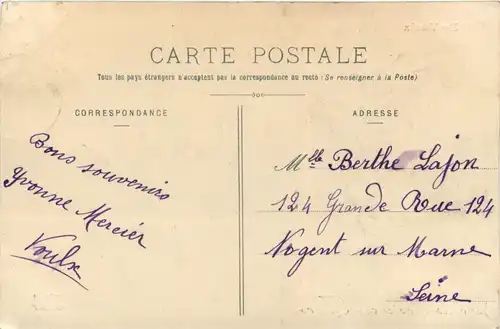 CARTE POSTALE
Tous les pays étrangers n'acceptent pas la correspondance au recto (Se renseigner à la Poste)
CORRESPONDANCE
ADRESSE
Bons souvenirs
Yvonne Mercier
Voulx
Mlle Berthe Lajon
124 Grande Rue 124
Nogent sur Marne
Seine